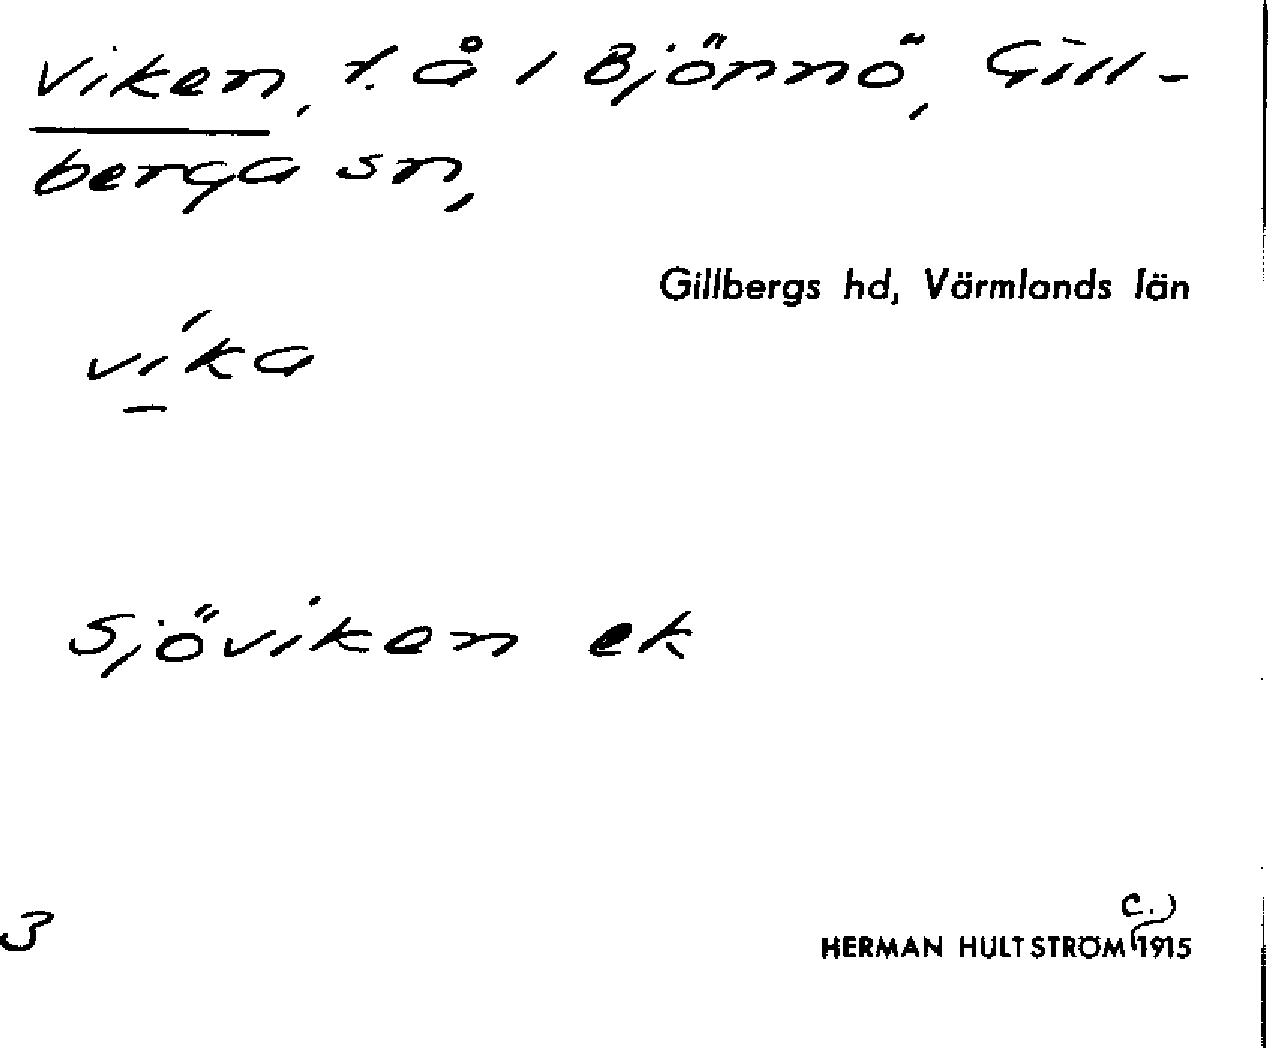 Viken, t. å 1 Björnö, Gill-
berga sn,
Gillbergs hd, Värmlands län
víka
Sjöviken ek
3
C.)
HERMAN HULTSTRÖM 1915